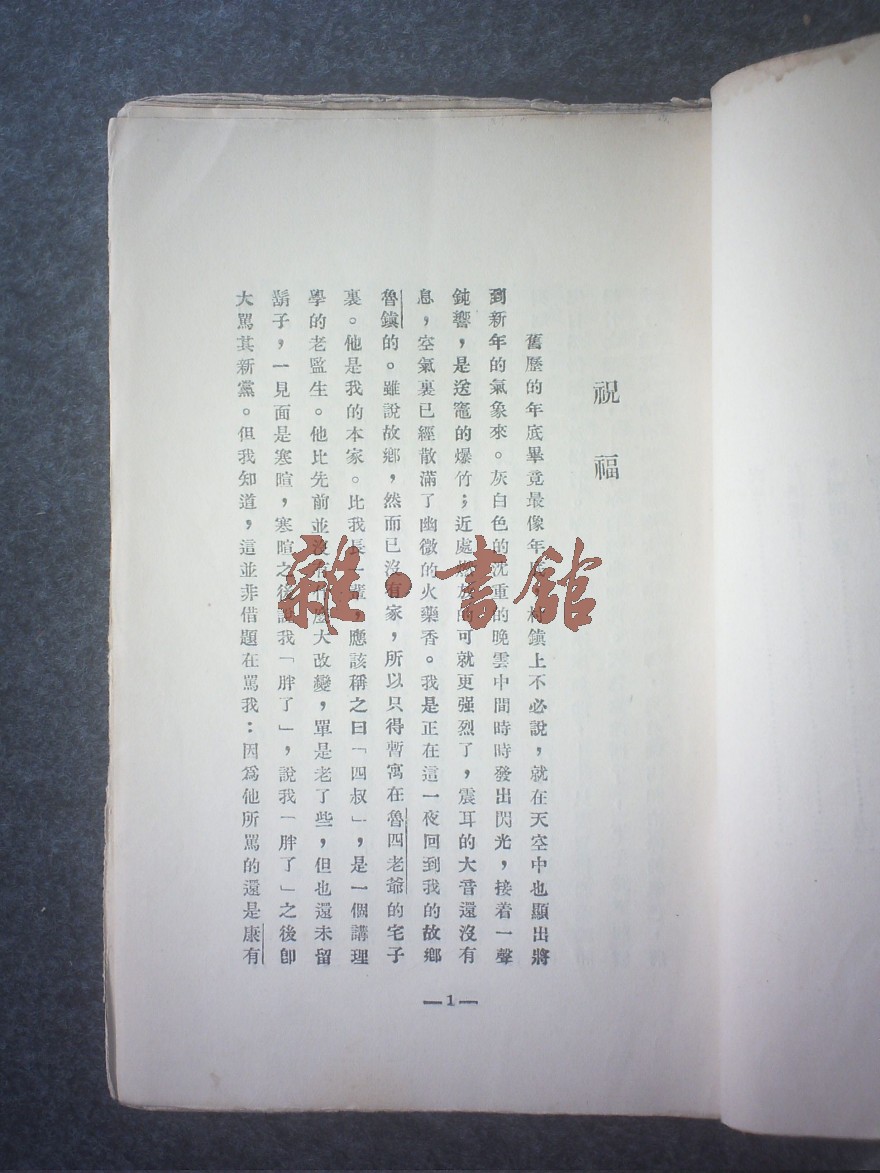 祝福
舊歷的年底畢竟最像年底，村鎭上不必說，就在天空中也顯出將
到新年的氣象來。灰白色的沈重的晚雲中間時時發出閃光，接着一聲
鈍響，是送竈的爆竹；近處燃放的可就更强烈了，震耳的大音還沒有
息，空氣裏已經散滿了幽微的火藥香。我是正在這一夜回到我的故鄉
魯鎭的。雖說故鄉，然而已沒有家，所以只得暫寓在魯四老爺的宅子
裏。他是我的本家。比我長一輩，應該稱之曰「四叔」，是一個講理
學的老監生。他比先前並沒有什麼大改變，單是老了些，但也還未留
鬍子，一見面是寒暄，寒暄之後說我「胖了」，說我「胖了」之後卽
大罵其新黨。但我知道，這並非借題在罵我：因爲他所罵的還是康有
— 1 —
雜·書館